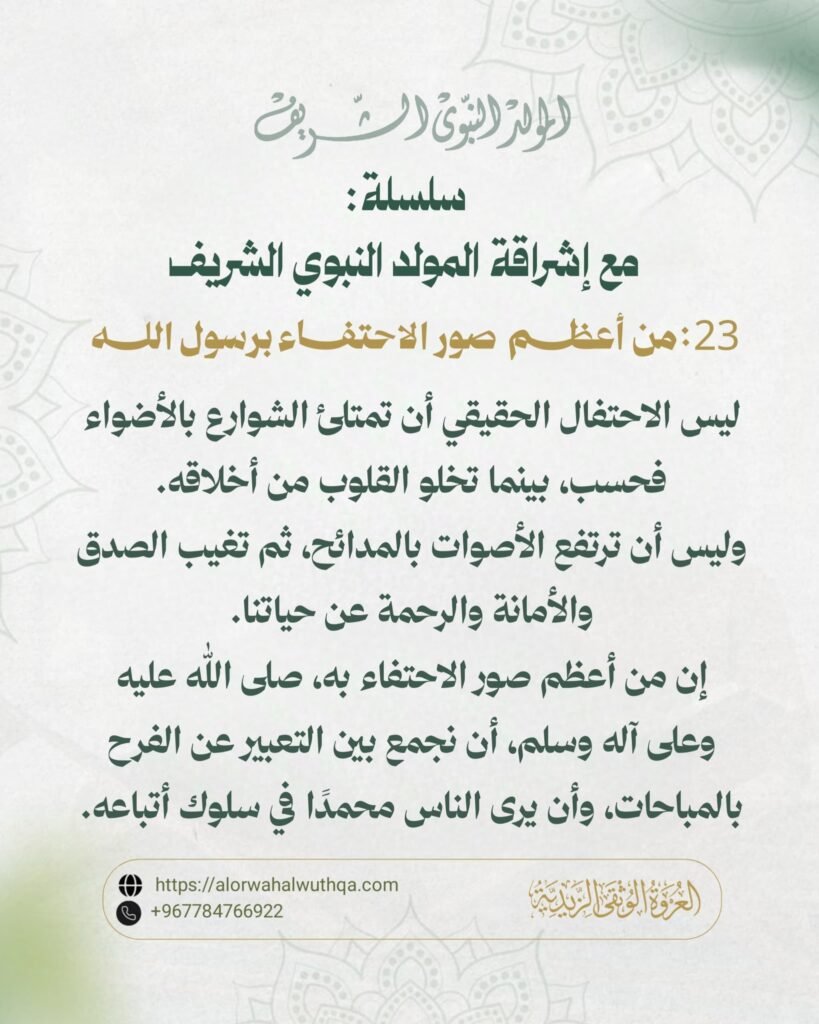 المولد النبوي الشريف
سلسلة:
مع إشراقة المولد النبوي الشريف
23: من أعظم صور الاحتفاء برسول الله
ليس الاحتفال الحقيقي أن تمتلئ الشوارع بالأضواء
فحسب، بينما تخلو القلوب من أخلاقه.
وليس أن ترتفع الأصوات بالمدائح، ثم تغيب الصدق
والأمانة والرحمة عن حياتنا.
إن من أعظم صور الاحتفاء به، صلى الله عليه
وعلى آله وسلم، أن نجمع بين التعبير عن الفرح
بالمباحات، وأن يرى الناس محمدًا في سلوك أتباعه.
https://alorwahalwuthqa.com
+967784766922
العُرْوَةُ الوُثْقَى الزَّيْدِيَّةُ